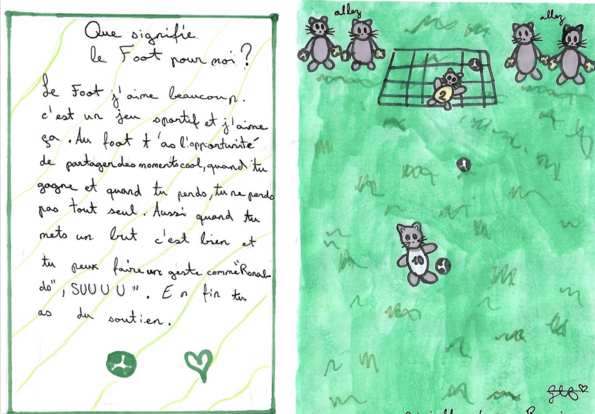 Que signifie
le Foot pour moi ?
Le Foot j'aime beaucoup.
c'est un jeu sportif et j'aime
ça. Au foot t'as l'opportunité
de partager des moments cool, quand tu
gagne et quand tu perds, tu ne perds
pas tout seul. Aussi quand tu
mets un but c'est bien et
tu peux faire une geste comme "Ronal-
do", SUUUU". En fin tu
as du soutien.
allez
allez
2
10